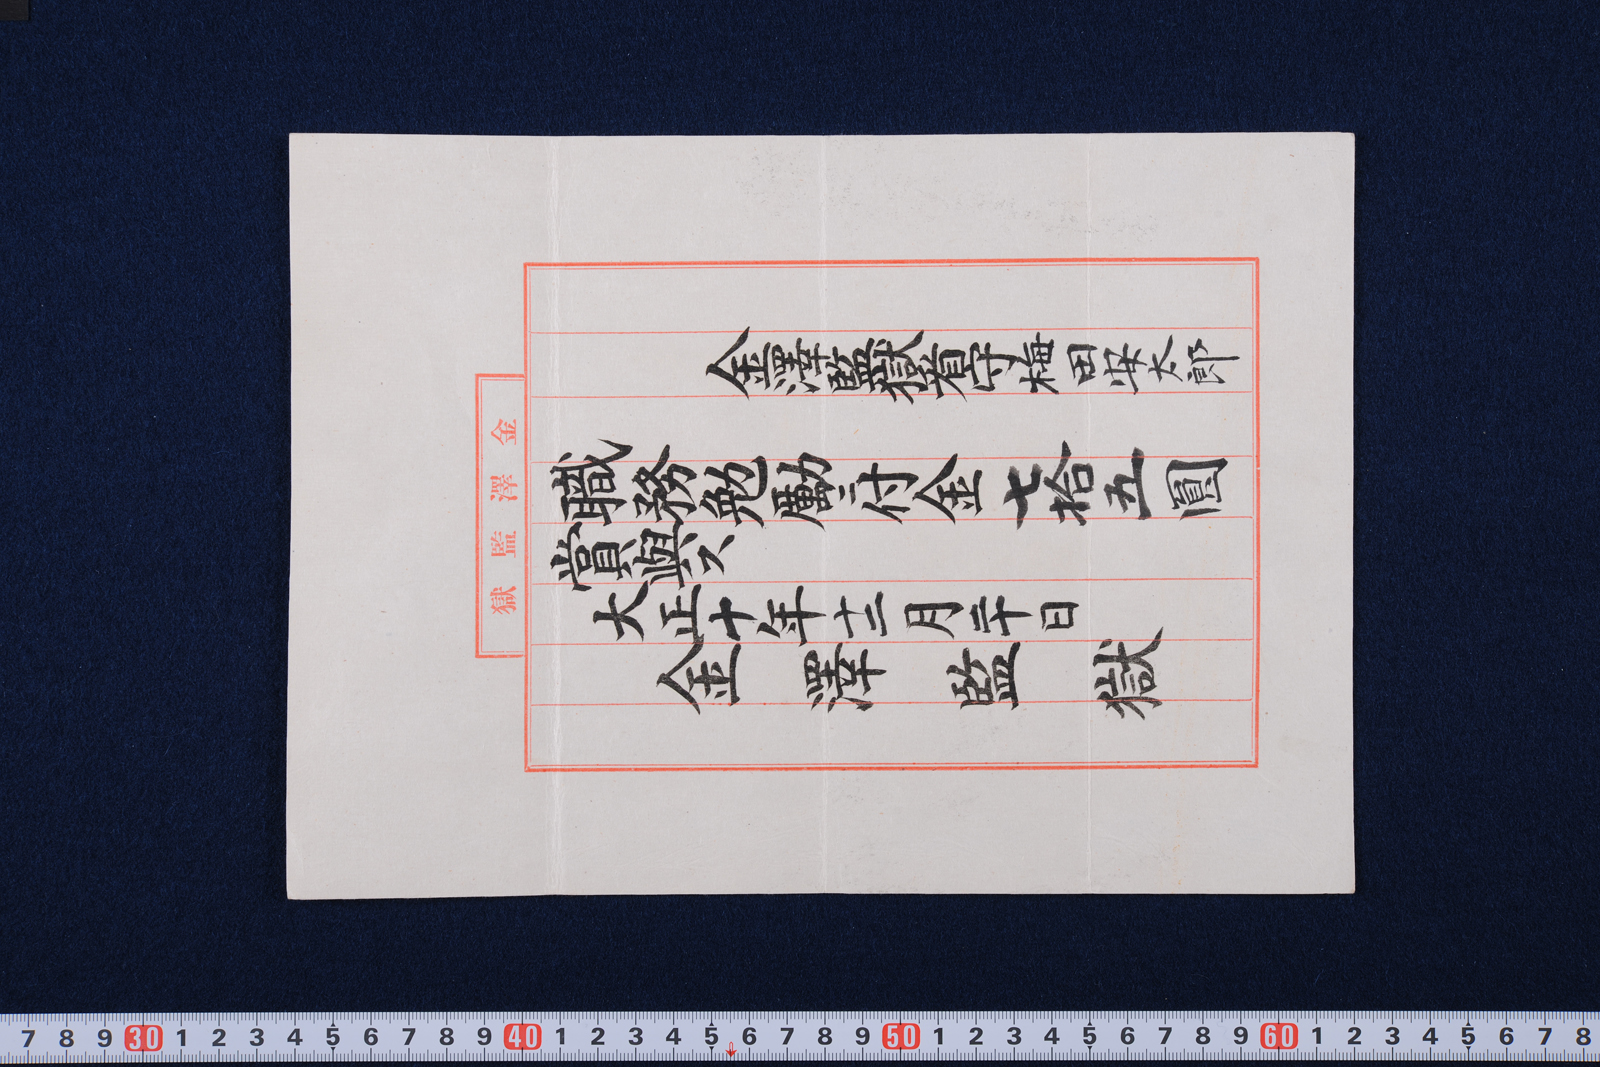 金澤監獄看守梅田安太郎
職務勉勵ニ付金七拾五圓
賞與ス
大正十年十二月二十日
金澤監獄
金澤監獄
7 8 9 30 1 2 3 4 5 6 7 8 9 40 1 2 3 4 5 6 7 8 9 50 1 2 3 4 5 6 7 8 9 60 1 2 3 4 5 6 7 8